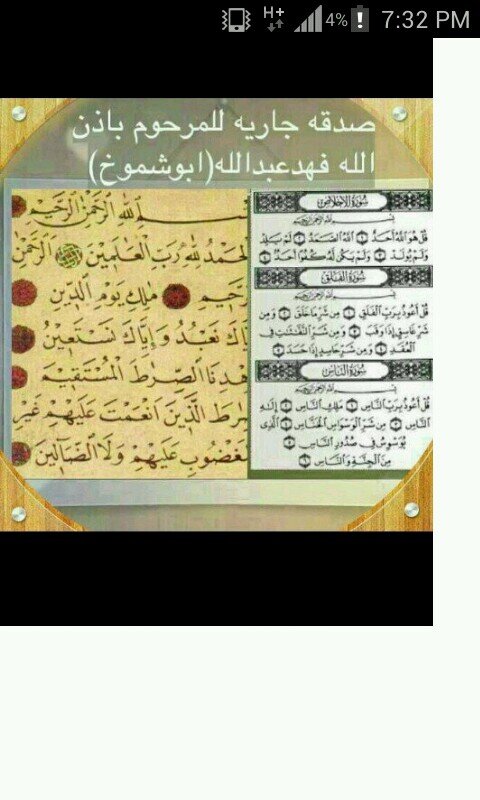 H+ 4% 7:32 PM
صدقه جاريه للمرحوم باذن
الله فهدعبدالله(ابوشموخ)
بسم الله الرحمن الرحيم
الحمد لله رب العالمين الرحمن
الرحيم ملك يوم الدين
اياك نعبد واياك نستعين
اهدنا الصرط المستقيم
صرط الذين انعمت عليهم غير
المغضوب عليهم ولا الضالين
سورة الإخلاص
بسم الله الرحمن الرحيم
قل هو الله أحد ١ الله الصمد ٢ لم يلد
ولم يولد ٣ ولم يكن له كفوا أحد ٤
سورة الفلق
بسم الله الرحمن الرحيم
قل أعوذ برب الفلق ١ من شر ما خلق ٢ ومن
شر غاسق إذا وقب ٣ ومن شر النفثت في
العقد ٤ ومن شر حاسد إذا حسد ٥
سورة الناس
بسم الله الرحمن الرحيم
قل أعوذ برب الناس ١ ملك الناس ٢ إله
الناس ٣ من شر الوسواس الخناس ٤ الذي
يوسوس في صدور الناس ٥
من الجنة والناس ٦